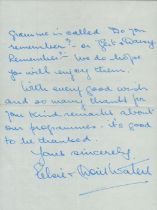 gramme is called "Do you
remember"- or
Remember"- We do hope
you will enjoy them.
With every good wish
and so many thanks for
your kind remarks about
our programmes. it's good
to be thanked.
Yours sincerely
Waters